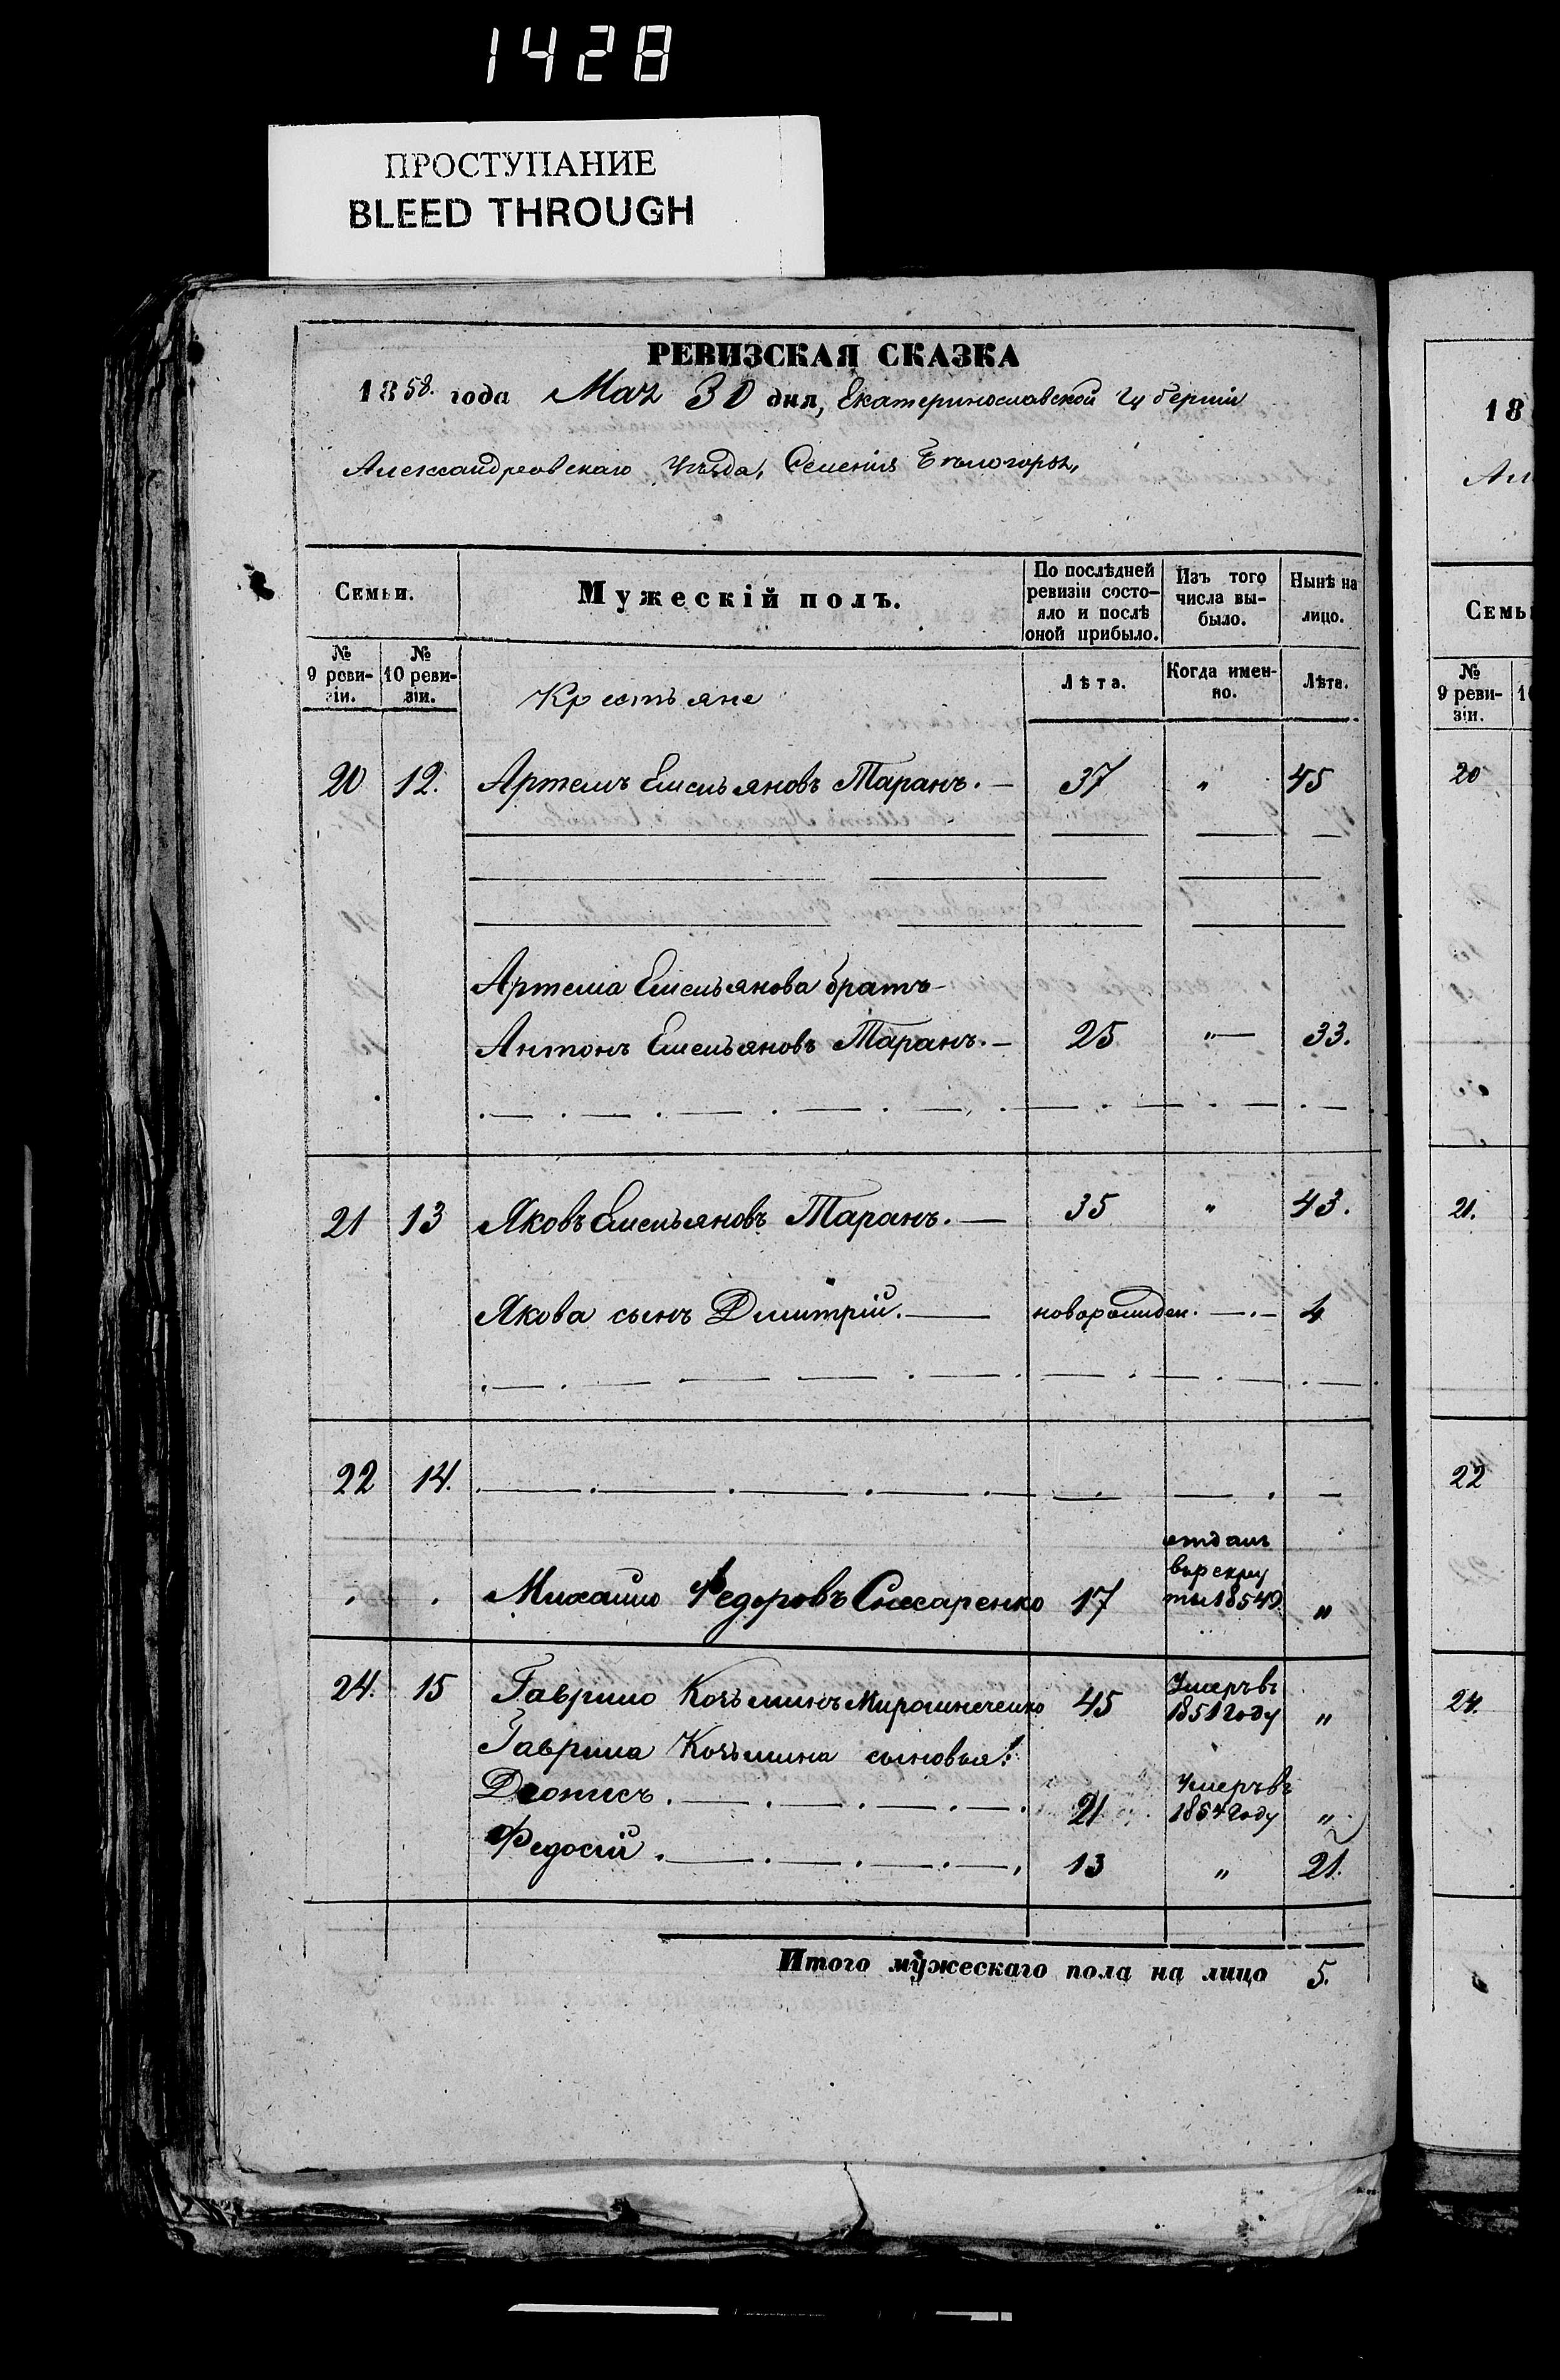 1428
ПРОСТУПАНИЕ
BLEED THROUGH
РЕВИЗСКАЯ СКАЗКА
1858. года Мая 30 дня, Екатеринославской губерніи
Александровскаго уѣзда, Селенія Бѣлогорья,
Семьи. Мужескій полъ. По послѣдней ревизіи состояло и послѣ оной прибыло. Изъ того числа выбыло. Нынѣ на лицо.
№ 9 ревизіи. № 10 ревизіи. Крестьяне Лѣта. Когда именно. Лѣта.
20 12. Артемъ Емельяновъ Таранъ. — 37 " 45
Артема Емельянова братъ
Антонъ Емельяновъ Таранъ. — 25 " — 33.
21 13 Яковъ Емельяновъ Таранъ. — 35 " 43.
Якова сынъ Дмитрій. — новорожден. — . — 4
22 14.
отданъ
въ рекру
Михайло Федоровъ Снесаренко 17 ты 1854 "
24. 15 Гаврило Козьминъ Мирошнеченко 45 Умеръ въ 1851 году "
Гаврила Козьмина сыновья:
Деонисъ. 21 Умеръ въ 1854 году "
Федосій. 13 " 21.
Итого мужескаго пола на лицо 5.
18
Ал
Семь
№
9 реви-
зіи.
20
21.
22
24.